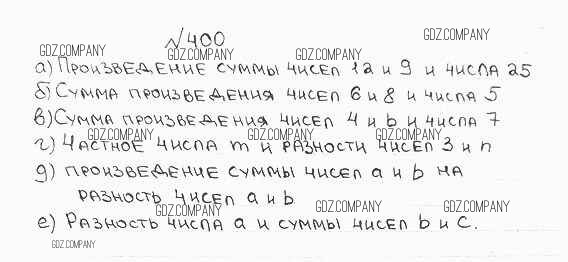 №400
GDZ.COMPANY
GDZ.COMPANY GDZ.COMPANY GDZ.COMPANY
а) Произведение суммы чисел 12 и 9 и числа 25
б) Сумма произведения чисел 6 и 8 и числа 5
в) Сумма произведения чисел 4 и b и числа 7
GDZ.COMPANY GDZ.COMPANY GDZ.COMPANY
г) Частное числа m и разности чисел 3 и n
д) произведение суммы чисел a и b на
разность чисел a и b
GDZ.COMPANY GDZ.COMPANY GDZ.COMPANY
е) Разность числа a и суммы чисел b и c.
GDZ.COMPANY